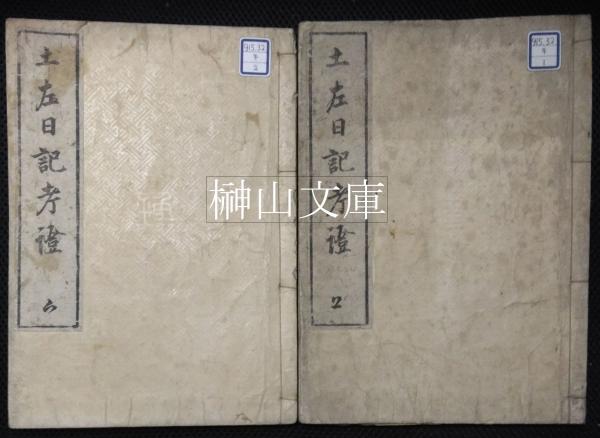 土左日記考證
915.32
1
土左日記考證
915.32
2
榊山文庫